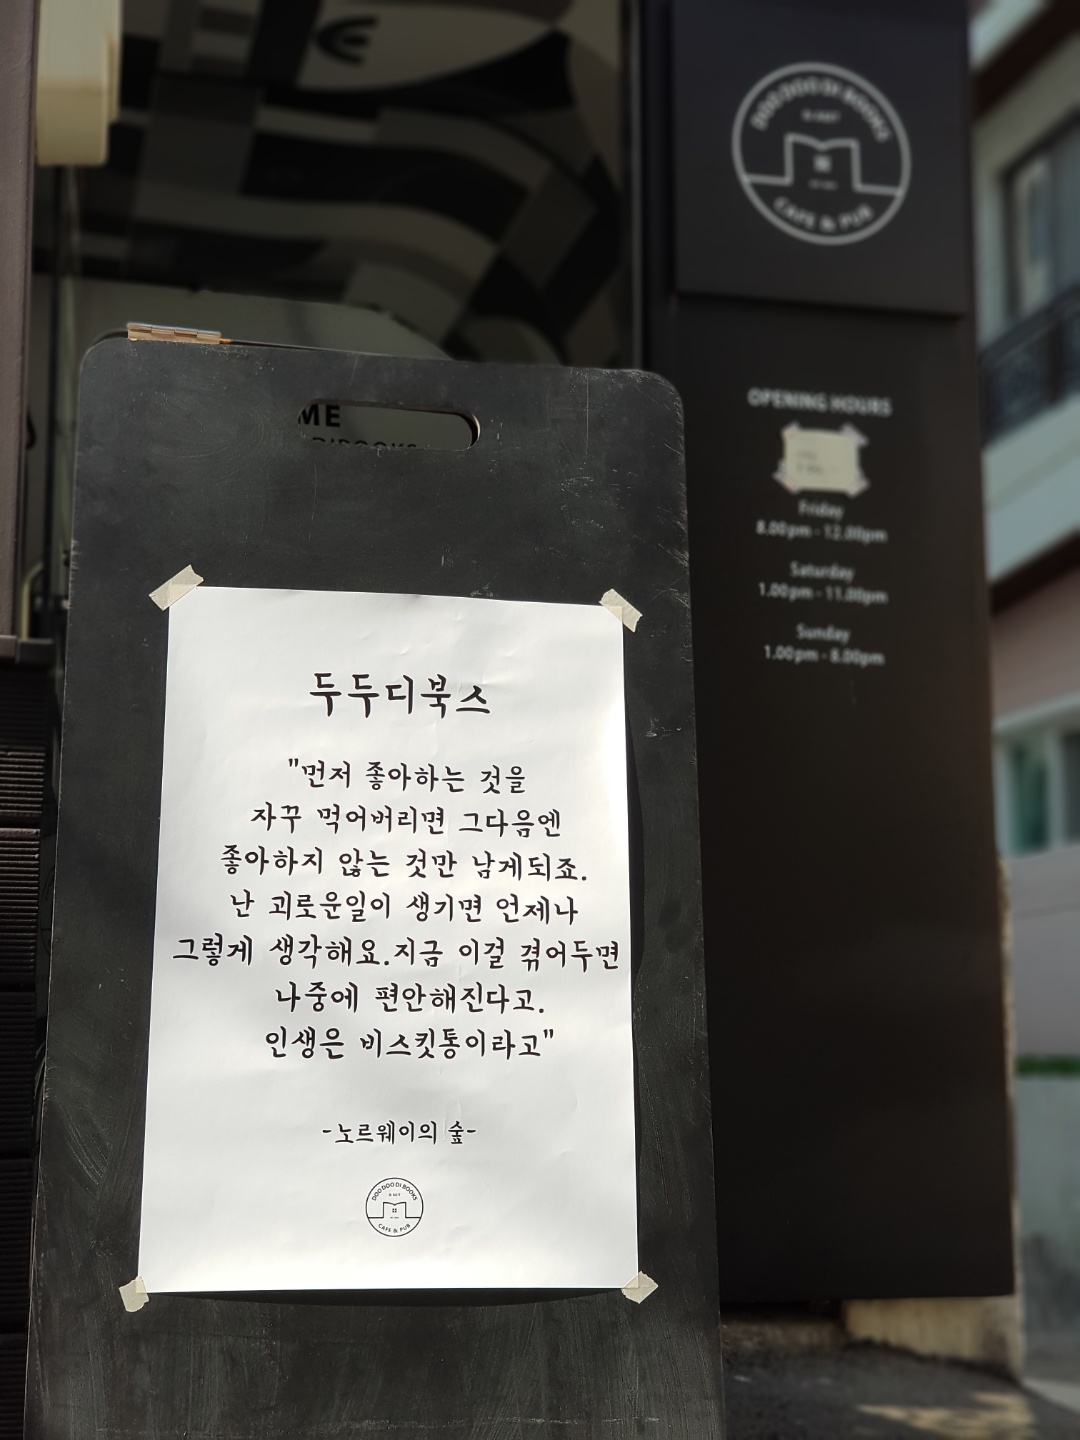 DOO DOO DI BOOKS
CAFE & PUB
OPENING HOURS
Friday
8.00pm - 12.00pm
Saturday
1.00pm - 11.00pm
Sunday
1.00pm - 8.00pm
ME
DIBOOKS
두두디북스
"먼저 좋아하는 것을
자꾸 먹어버리면 그다음엔
좋아하지 않는 것만 남게되죠.
난 괴로운일이 생기면 언제나
그렇게 생각해요.지금 이걸 겪어두면
나중에 편안해진다고.
인생은 비스킷통이라고"
-노르웨이의 숲-
DOO DOO DI BOOKS
CAFE & PUB